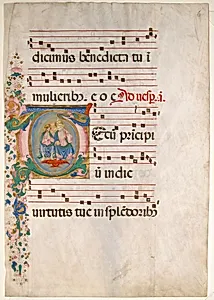 dicimus benedicta tu i
mulierib; e o e Ad uesp. i.
ecū prīcipi
ū in die
uirtutis tue in splēdorib;